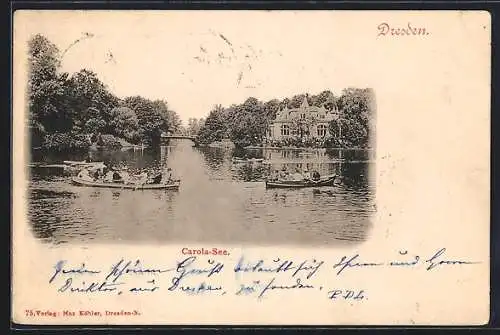 Dresden.
Carola-See.
Einen schönen Gruß erlaubt sich Ihnen und
Direktor, aus Dresden, zu senden,
75, Verlag: Max Köhler, Dresden-N.